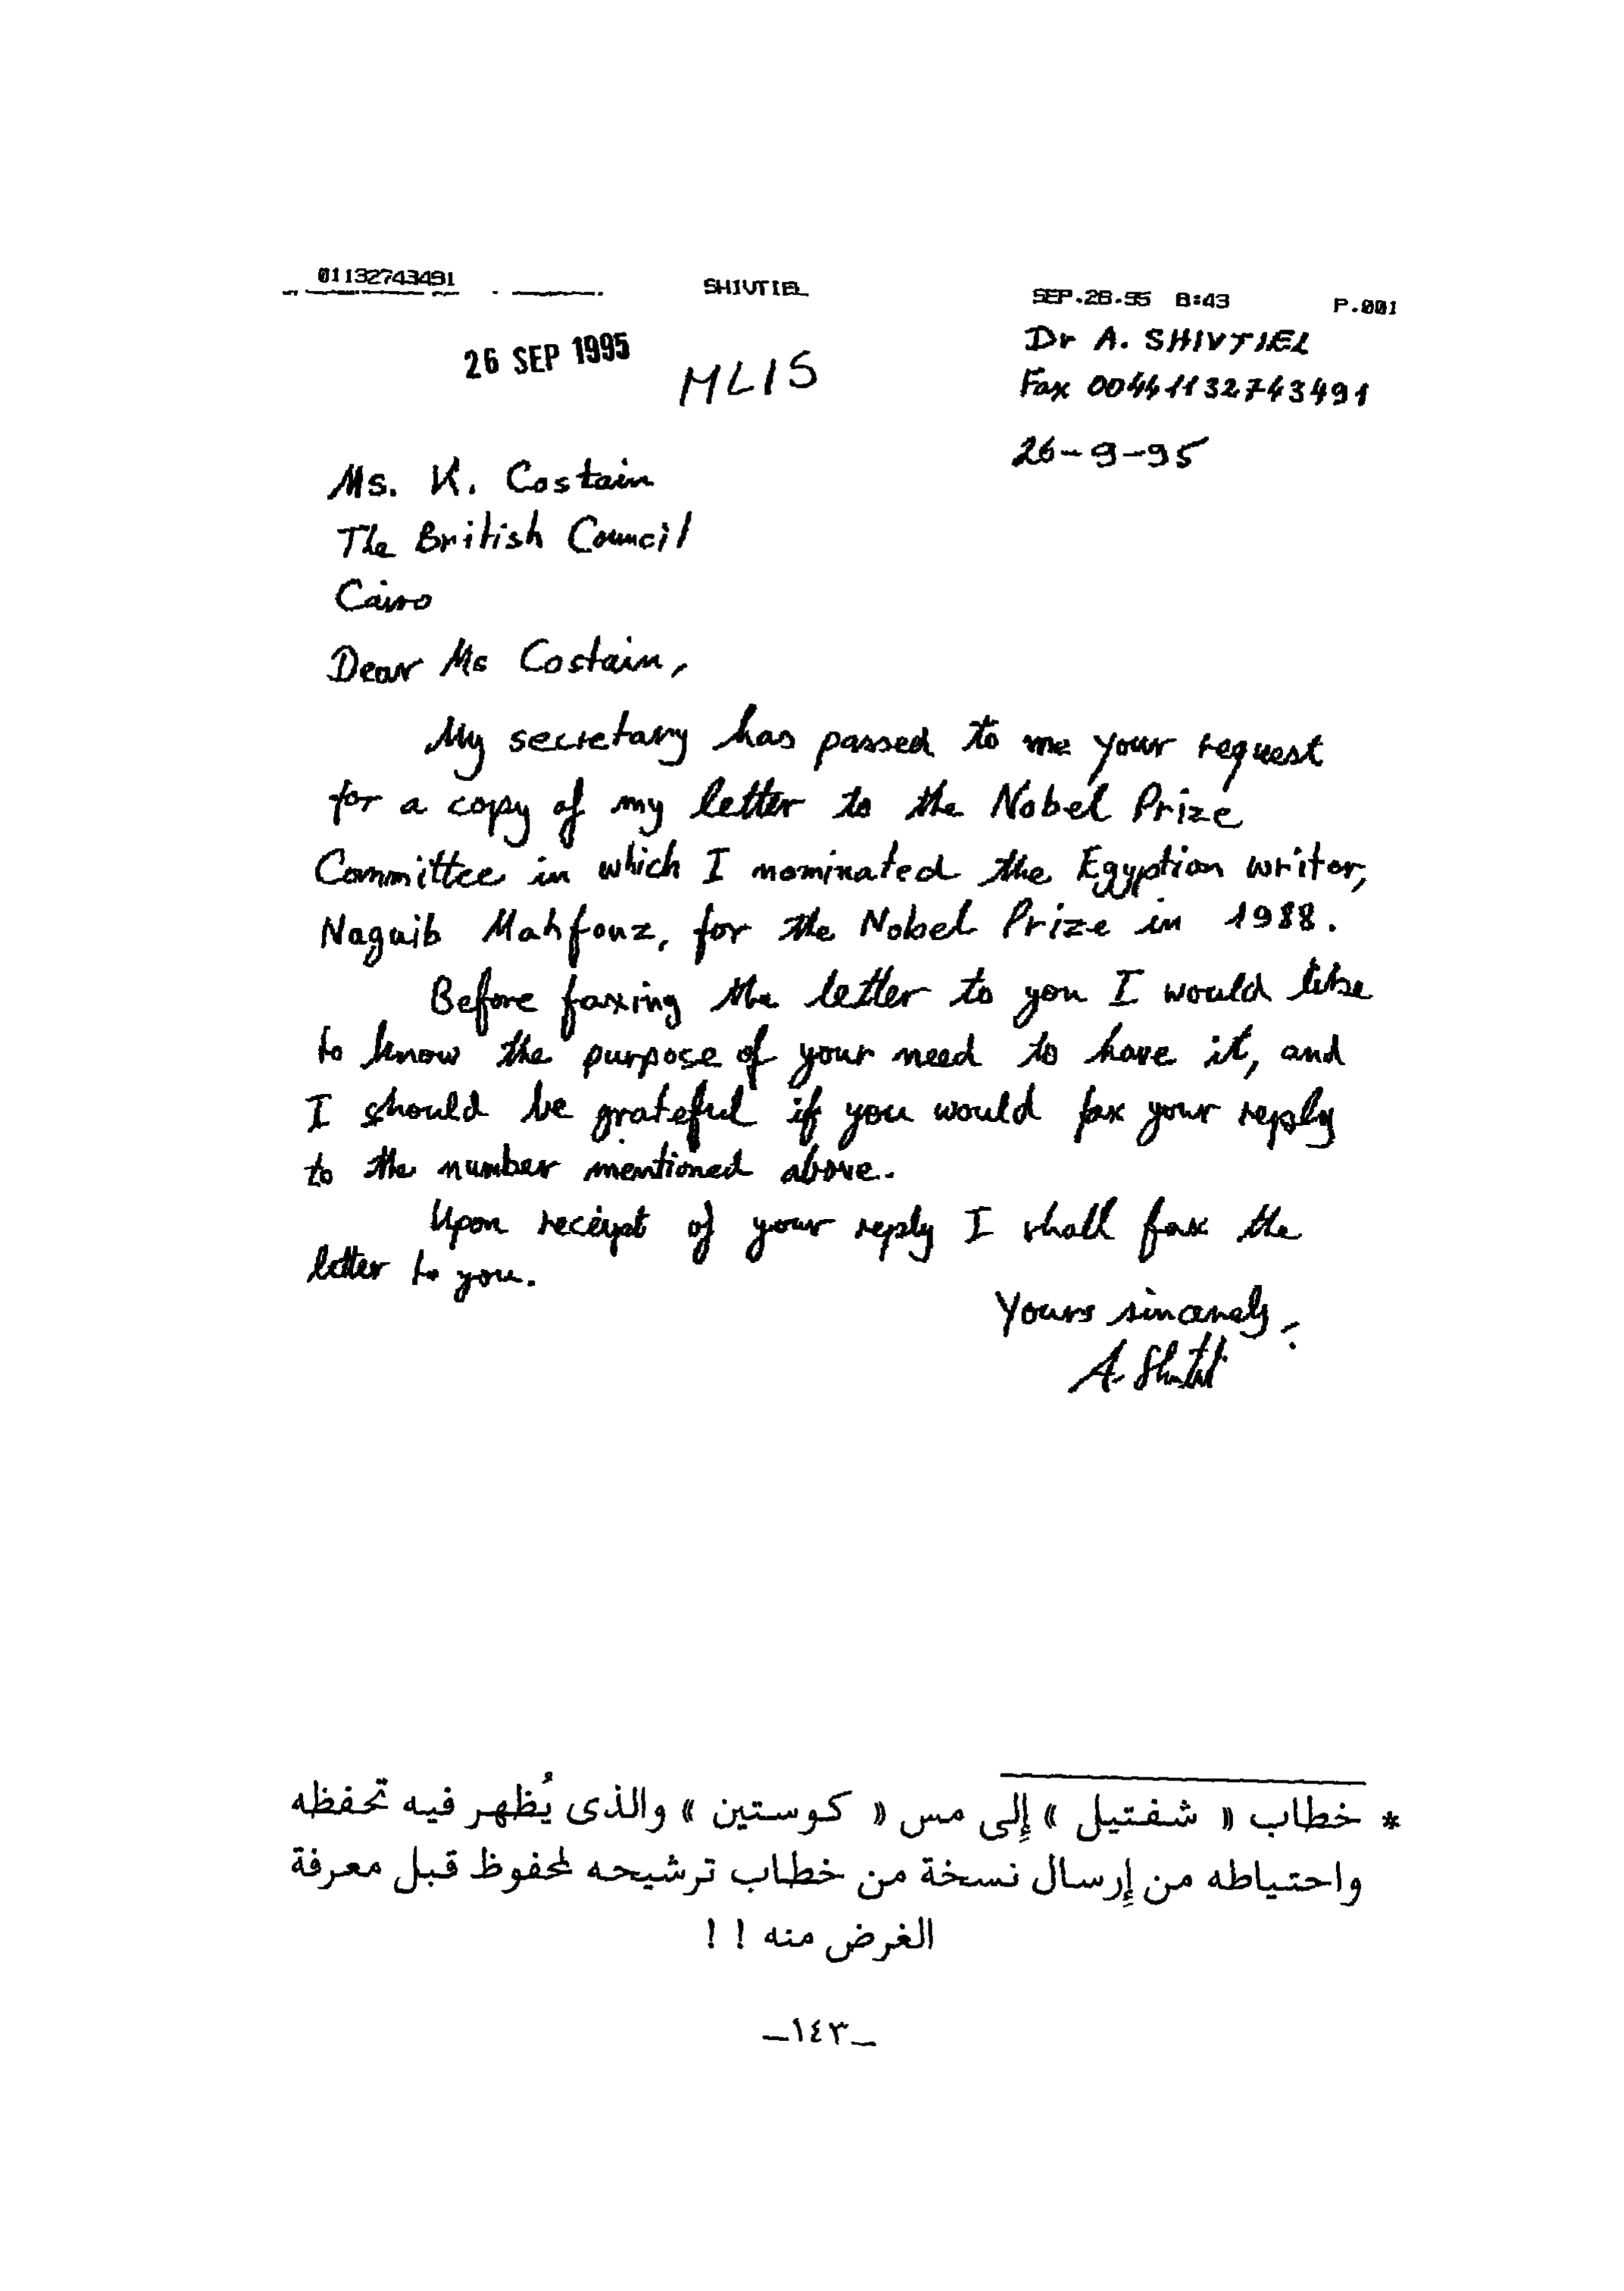 01132743491 SHIVTIEL SEP.26.95 8:43 P.001
26 SEP 1995 MLIS Dr A. SHIVTIEL
Fax 00441132743491
26-9-95
Ms. K. Costain
The British Council
Cairo
Dear Ms Costain,
My secretary has passed to me your request
for a copy of my letter to the Nobel Prize
Committee in which I nominated the Egyptian writer,
Naguib Mahfouz, for the Nobel Prize in 1988.
Before faxing the letter to you I would like
to know the purpose of your need to have it, and
I should be grateful if you would fax your reply
to the number mentioned above.
Upon receipt of your reply I shall fax the
letter to you.
Yours sincerely,
A. Shivtiel
* خطاب « شفتيل » إلى مس « كوستين » والذى يُظهر فيه تحفظه
واحتياطه من إرسال نسخة من خطاب ترشيحه لمحفوظ قبل معرفة
الغرض منه ! !
–١٤٣–